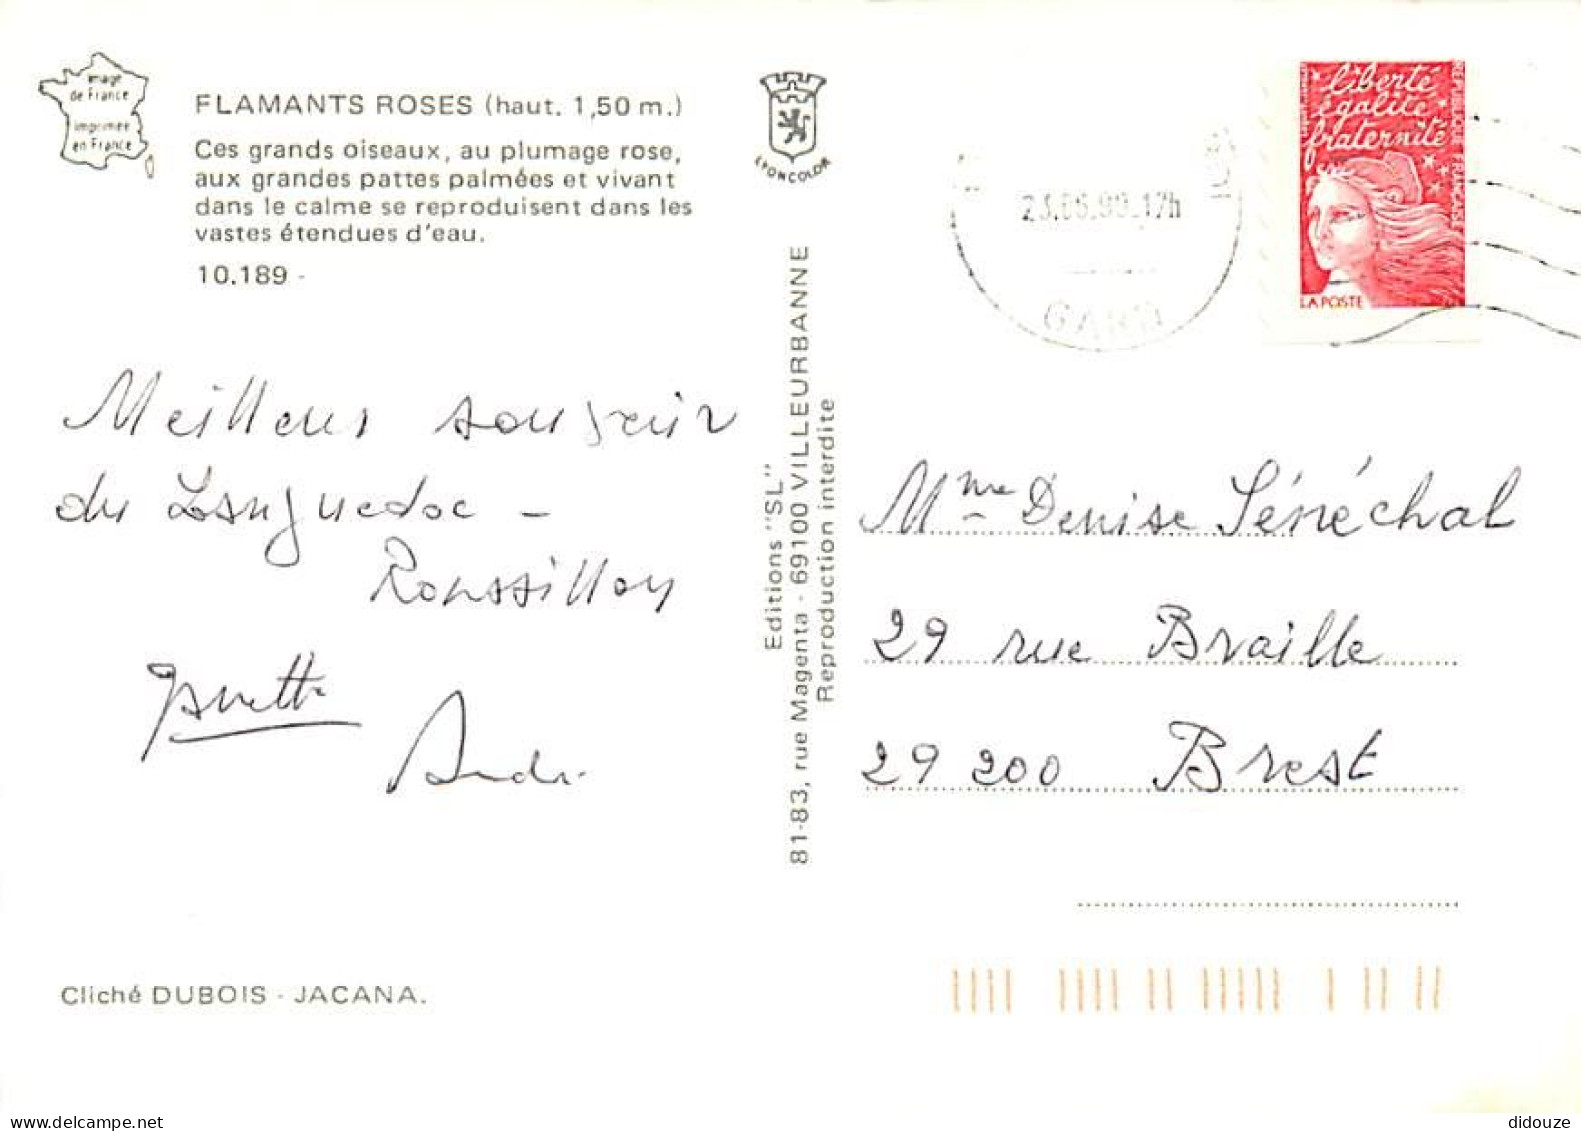 image
de France
imprimée
en France
FLAMANTS ROSES (haut. 1,50 m.)
Ces grands oiseaux, au plumage rose,
aux grandes pattes palmées et vivant
dans le calme se reproduisent dans les
vastes étendues d'eau.
10.189 -
Meilleurs souvenir
du Languedoc -
Roussillon
André
Cliché DUBOIS - JACANA.
LYONCOLOR
Editions "SL"
81-83, rue Magenta - 69100 VILLEURBANNE
Reproduction interdite
17h
GARD
liberté
égalité
fraternité
REPUBLIQUE FRANÇAISE
LA POSTE
Mme Denise Sénéchal
29 rue Braille
29 200 Brest
delcampe.net
didouze